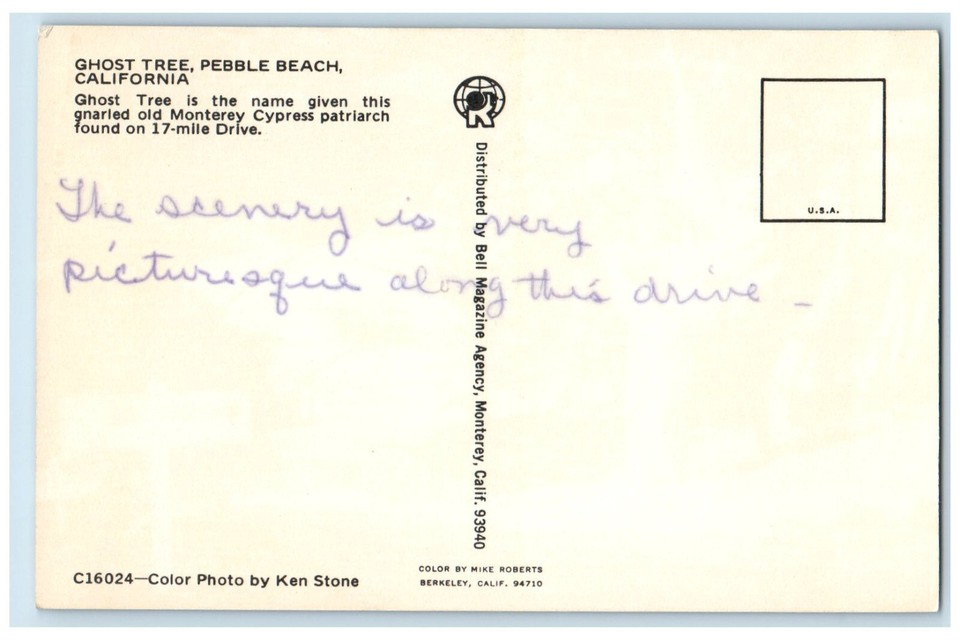 GHOST TREE, PEBBLE BEACH,
CALIFORNIA
Ghost Tree is the name given this
gnarled old Monterey Cypress patriarch
found on 17-mile Drive.
The scenery is very
picturesque along this drive -
R
Distributed by Bell Magazine Agency, Monterey, Calif. 93940
U.S.A.
C16024—Color Photo by Ken Stone
COLOR BY MIKE ROBERTS
BERKELEY, CALIF. 94710